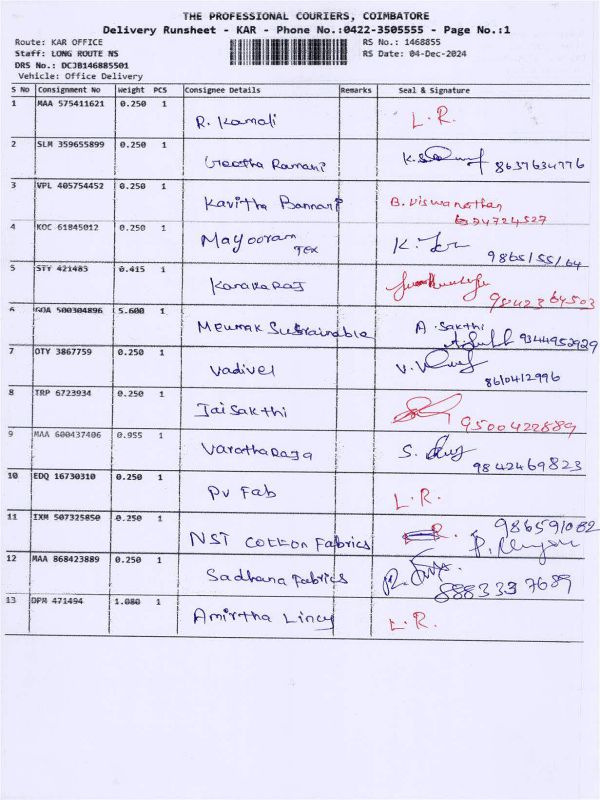 THE PROFESSIONAL COURIERS, COIMBATORE
Delivery Runsheet - KAR - Phone No.:0422-3505555 - Page No.:1
Route: KAR OFFICE RS No.: 1468855
Staff: LONG ROUTE NS RS Date: 04-Dec-2024
DRS No.: DCJB146885501
Vehicle: Office Delivery
S No Consignment No Weight PCS Consignee Details Remarks Seal & Signature
1 MAA 575411621 0.250 1 R. Kamali L.R.
2 SLM 359655899 0.250 1 Geetha Ramani 8637634776
3 VPL 405754452 0.250 1 Kavitha Bannari B. Viswanathan
4 KOC 61845012 0.250 1 Mayooram Tex 9865155164
5 STY 421483 0.415 1 KanakaRaj 9842364503
6 GOA 500304896 5.600 1 Sustainable A. Sakthi 9344952929
7 OTY 3867759 0.250 1 Vadivel 8610412996
8 TRP 6723934 0.250 1 Jai Sakthi 9500422889
9 MAA 600437406 0.955 1 VarathaRaja 9842469823
10 EDQ 16730310 0.250 1 PV Fab L.R.
11 IXM 507325850 0.250 1 NST Cotton Fabrics
12 MAA 868423889 0.250 1 Sadhana Fabrics 8883337689
13 DPR 471494 1.080 1 Amirtha Lincy L.R.